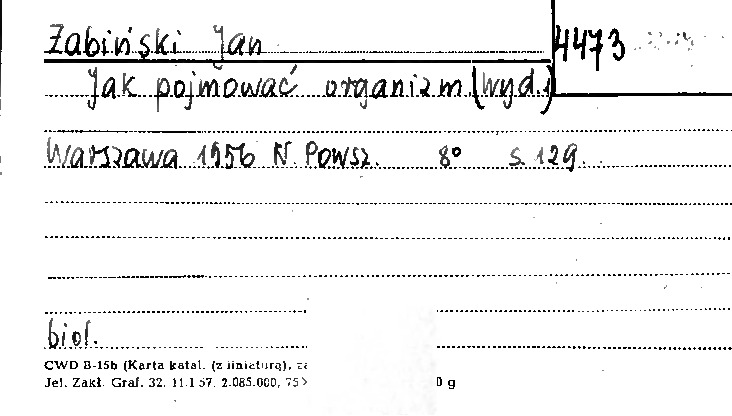 Żabiński Jan 4473
Jak pojmować organizm. (wyd.)
Warszawa 1956 N. Powsz. 8° s. 129.
biol.
CWD B-15b (Karta katal. (z liniaturą),
Jel. Zakł. Graf. 32. 11.1 57. 2.085.000, 75 0 g